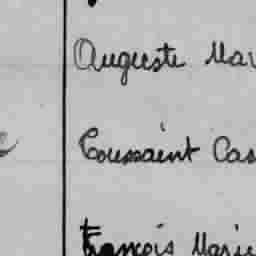 Auguste Mar
Toussaint Cas
François Marie